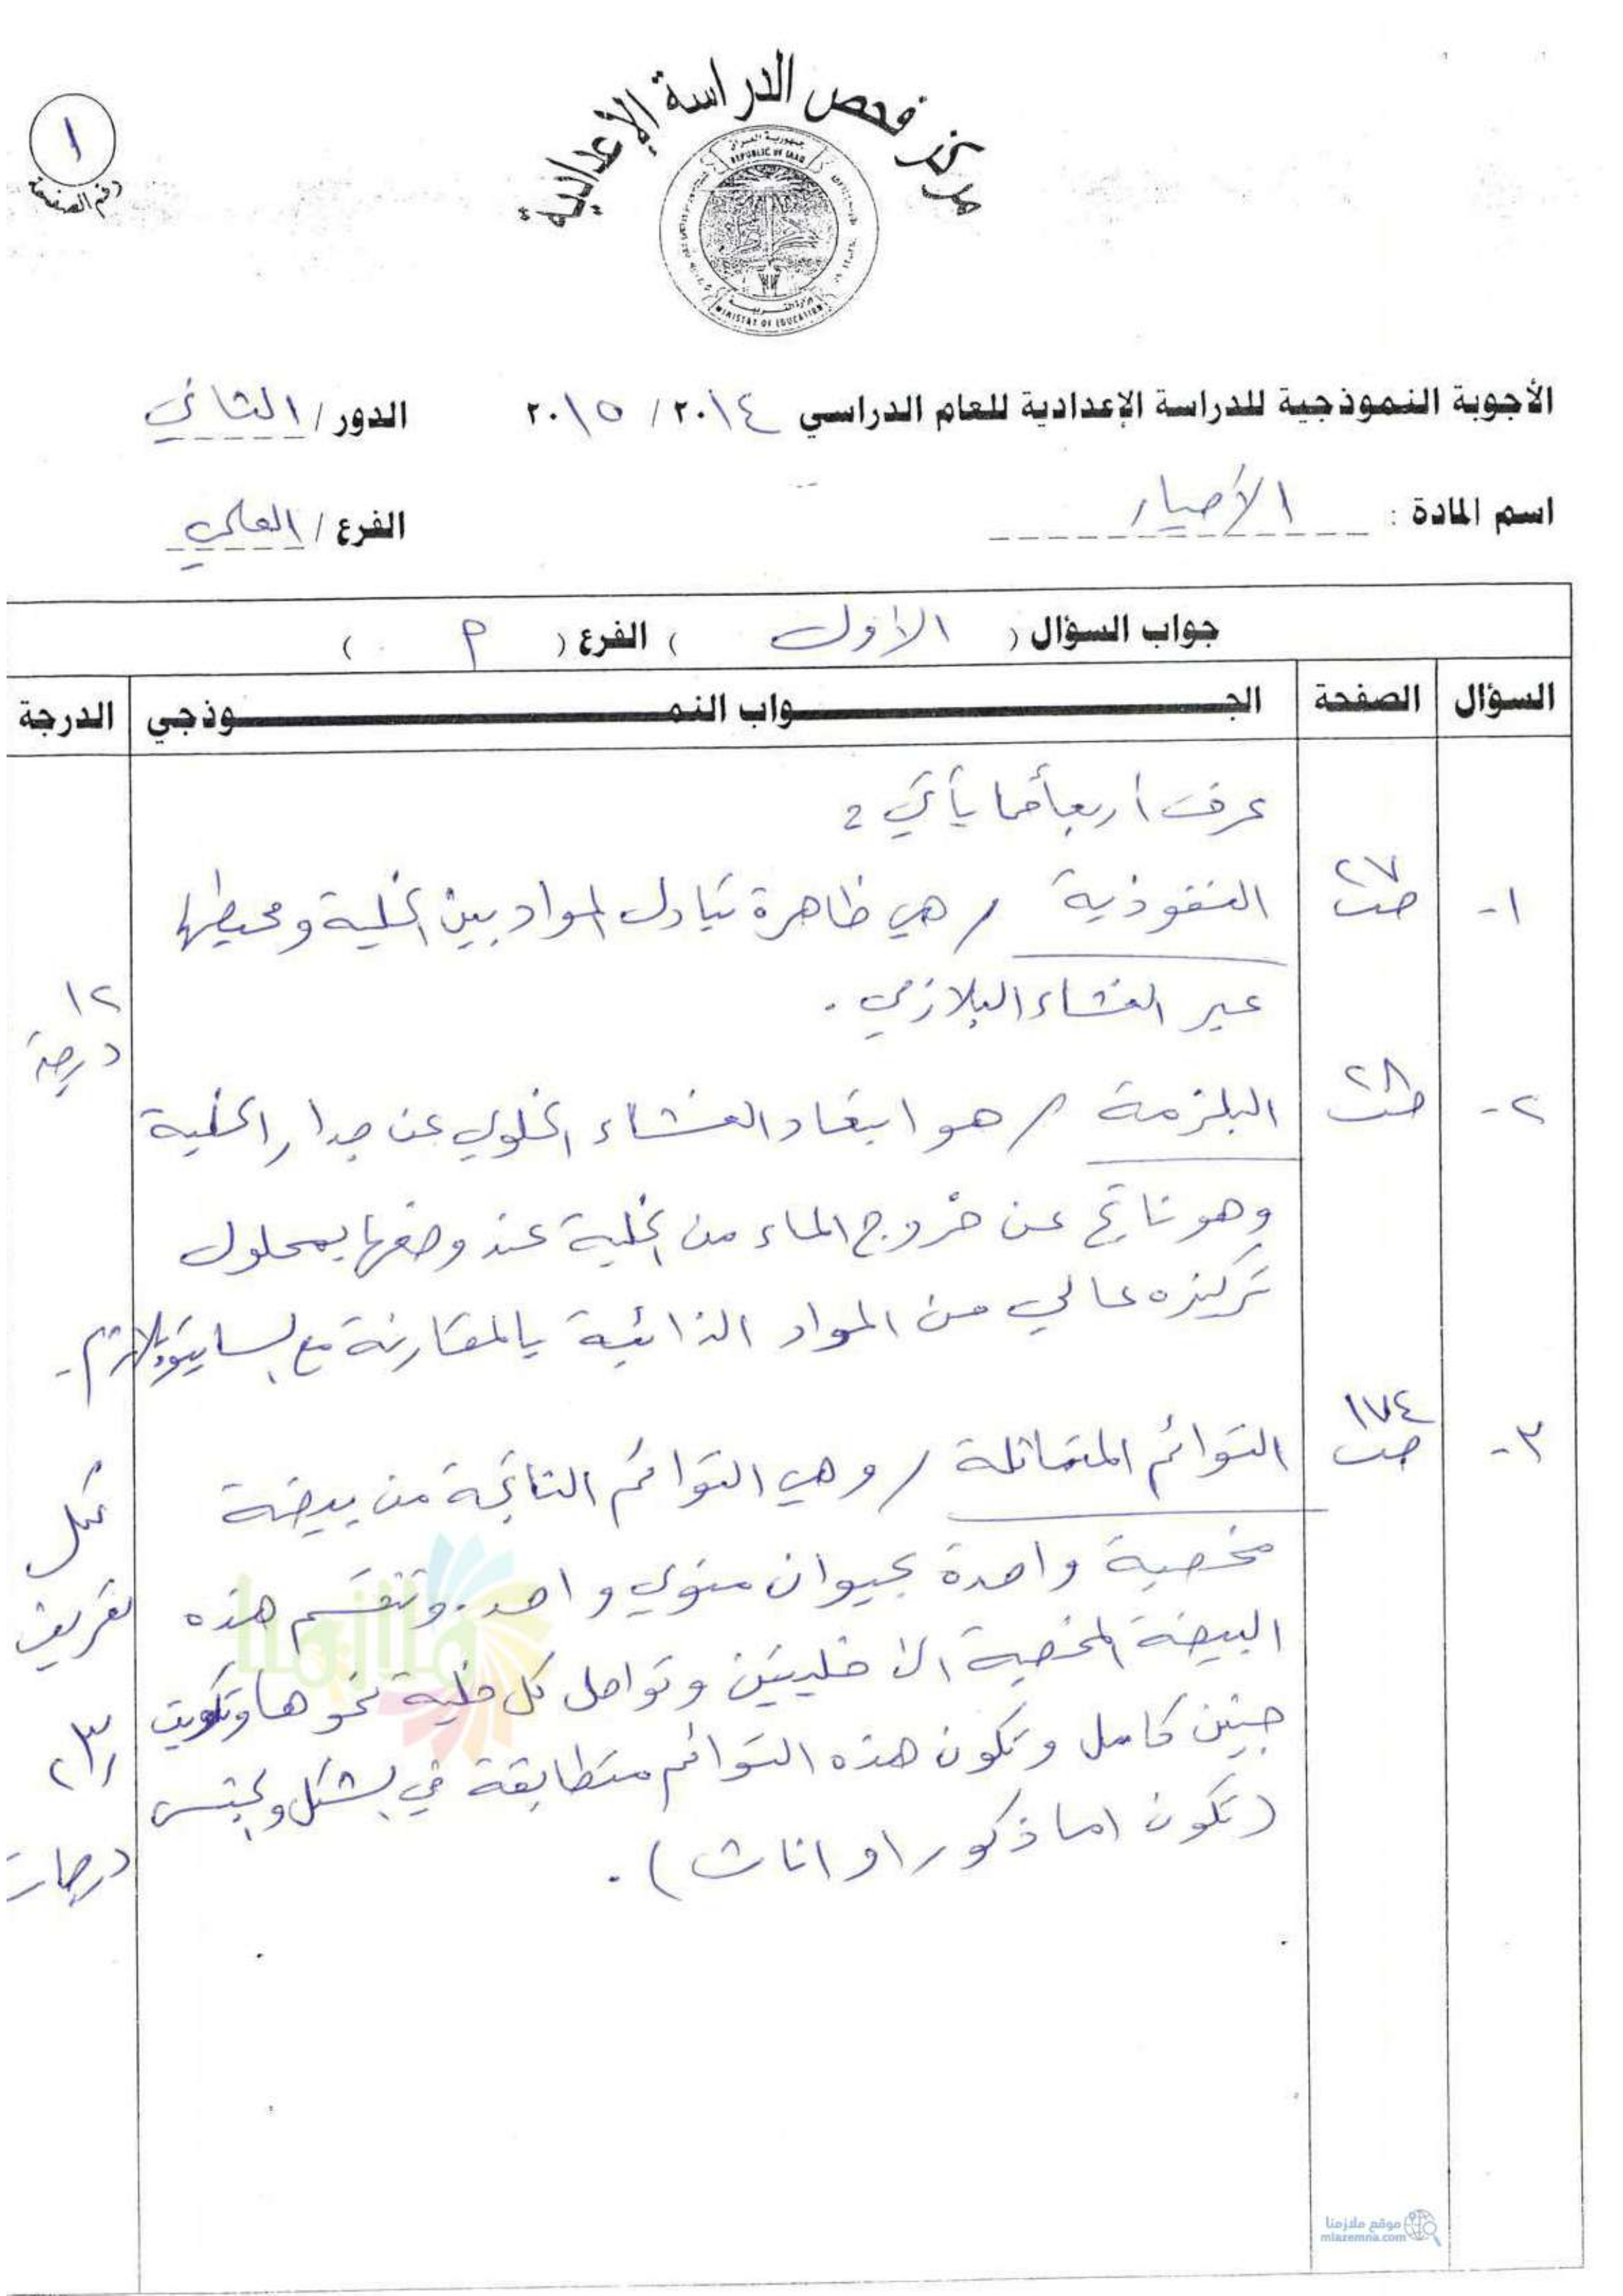 مركز فحص الدراسة الإعدادية
جمهورية العراق
REPUBLIC OF IRAQ
وزارة التربية
MINISTRY OF EDUCATION
١
رقم الصفحة
الأجوبة النموذجية للدراسة الإعدادية للعام الدراسي ٢٠١٤ / ٢٠١٥ الدور / الثاني
اسم المادة : الأحياء الفرع / العلمي
جواب السؤال ( الأول ) الفرع ( م )
السؤال الصفحة الجـــواب النمـــوذجي الدرجة
عرف أربعاً مما يأتي :
١- ص٢٧ النفوذية / هي ظاهرة تبادل المواد بين الخلية ومحيطها
عبر الغشاء البلازمي .
١٢ درجة
٢- ص٢٨ البلزمة / هو ابتعاد الغشاء الخلوي عن جدار الخلية
وهو ناتج عن خروج الماء من الخلية عند وضعها بمحلول
تركيزه عالي من المواد الذائبة بالمقارنة مع السايتوبلازم .
٣- ص١٧٤ التوائم المتماثلة / وهي التوائم الناتجة من بيضة
مخصبة واحدة بحيوان منوي واحد . وتنقسم هذه
البيضة المخصبة الى خليتين وتواصل كل خلية نموها وتكوين
جنين كامل وتكون هذه التوائم متطابقة في الشكل والجنس
(تكون اما ذكور او اناث) .
لكل
تعريف
٣
درجات
ملازمنا
موقع ملازمنا
mlazemna.com